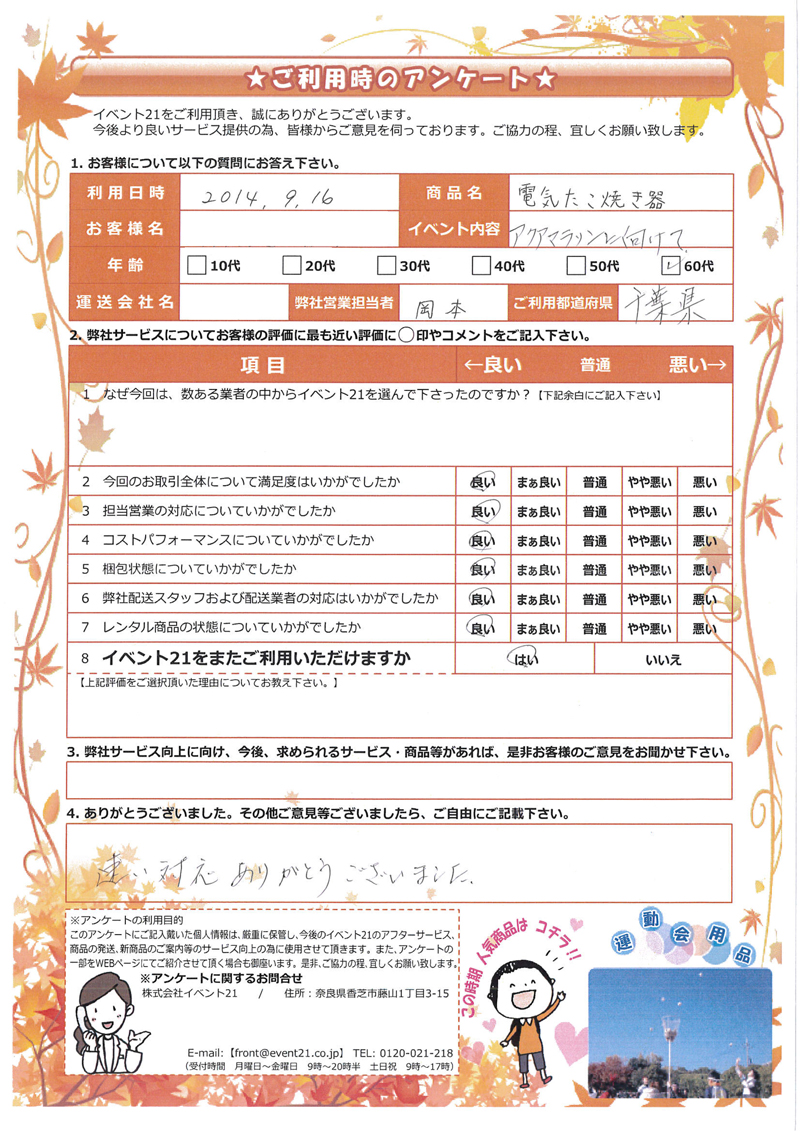 ★ご利用時のアンケート★
イベント21をご利用頂き、誠にありがとうございます。
今後より良いサービス提供の為、皆様からご意見を伺っております。ご協力の程、宜しくお願い致します。
1. お客様について以下の質問にお答え下さい。
利用日時 2014, 9, 16 商品名 電気たこ焼き器
お客様名 イベント内容 アクアマラソンに向けて
年齢 10代 20代 30代 40代 50代 60代
運送会社名 弊社営業担当者 岡本 ご利用都道府県 千葉県
2. 弊社サービスについてお客様の評価に最も近い評価に◯印やコメントをご記入下さい。
項目 ←良い 普通 悪い→
1 なぜ今回は、数ある業者の中からイベント21を選んで下さったのですか？【下記余白にご記入下さい】
2 今回のお取引全体について満足度はいかがでしたか 良い まぁ良い 普通 やや悪い 悪い
3 担当営業の対応についていかがでしたか 良い まぁ良い 普通 やや悪い 悪い
4 コストパフォーマンスについていかがでしたか 良い まぁ良い 普通 やや悪い 悪い
5 梱包状態についていかがでしたか 良い まぁ良い 普通 やや悪い 悪い
6 弊社配送スタッフおよび配送業者の対応はいかがでしたか 良い まぁ良い 普通 やや悪い 悪い
7 レンタル商品の状態についていかがでしたか 良い まぁ良い 普通 やや悪い 悪い
8 イベント21をまたご利用いただけますか はい いいえ
【上記評価をご選択頂いた理由についてお教え下さい。】
3. 弊社サービス向上に向け、今後、求められるサービス・商品等があれば、是非お客様のご意見をお聞かせ下さい。
4. ありがとうございました。その他ご意見等ございましたら、ご自由にご記載下さい。
速い対応ありがとうございました.
※アンケートの利用目的
このアンケートにご記入戴いた個人情報は、厳重に保管し、今後のイベント21のアフターサービス、
商品の発送、新商品のご案内等のサービス向上の為に使用させて頂きます。また、アンケートの
一部をWEBページにてご紹介させて頂く場合も御座います。是非、ご協力の程、宜しくお願い致します。
※アンケートに関するお問合せ
株式会社イベント21 / 住所：奈良県香芝市藤山1丁目3-15
E-mail:【front@event21.co.jp】 TEL: 0120-021-218
（受付時間 月曜日～金曜日 9時～20時半 土日祝 9時～17時）
この時期 人気商品は コチラ!!
運動会用品